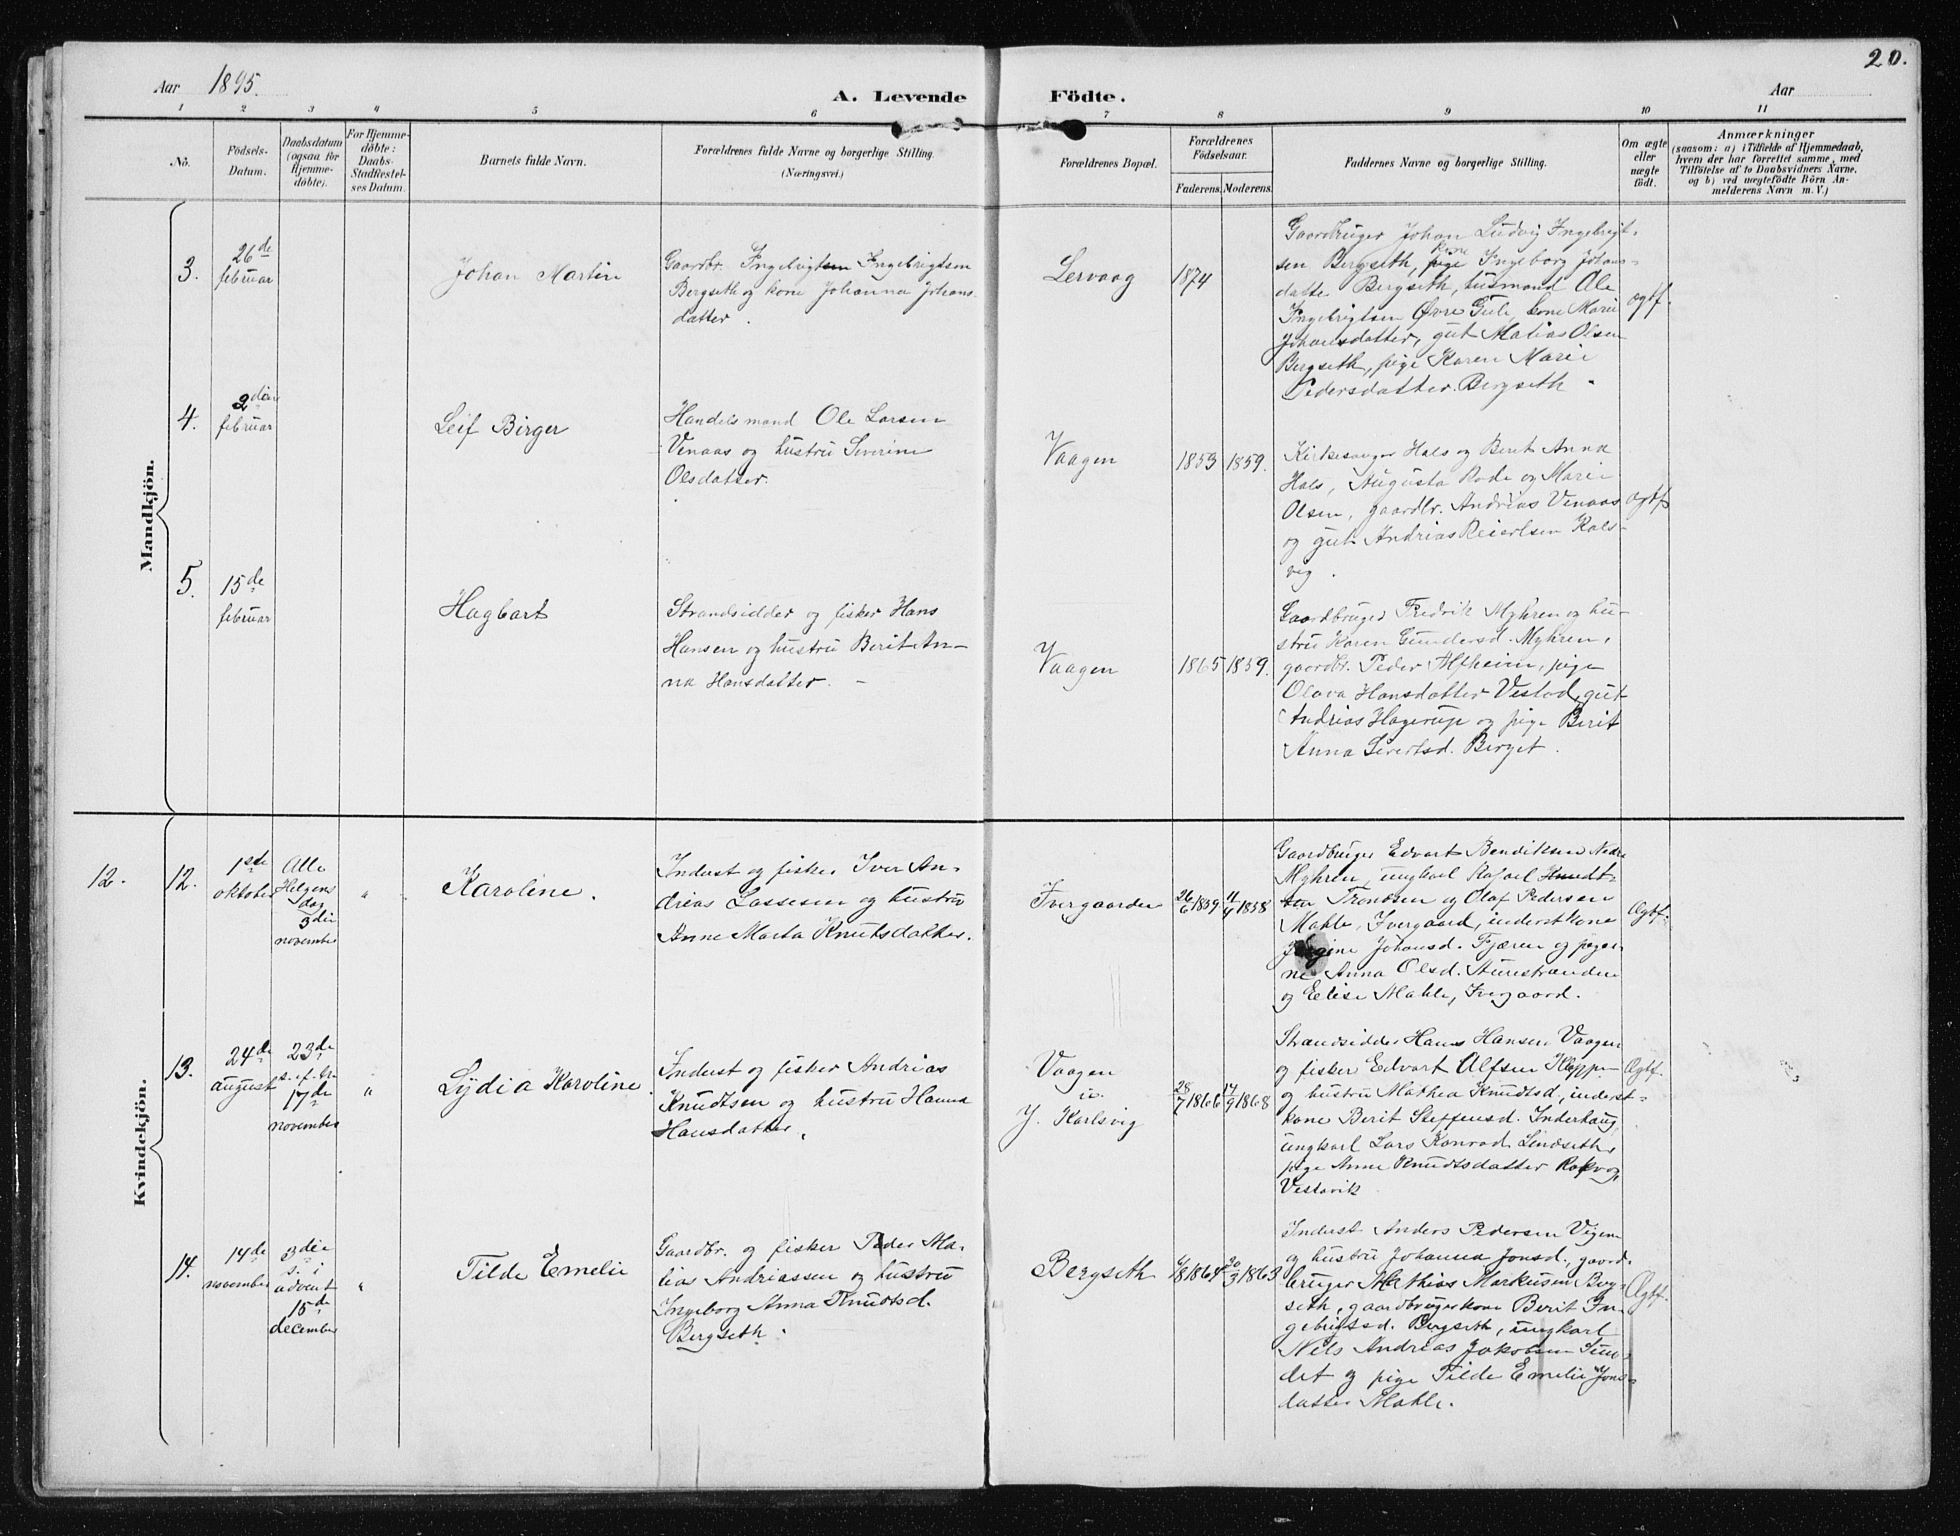 20.
Aar 1895.
A. Levende
Födte.
Aar
1 2 3 4 5 6
7 8 9 10 11
No.
Födsels-
Datum.
Daabsdatum
(ogsaa for
Hjemme-
döbte).
For Hjemme-
döbte:
Daabs-
Stadfæstel-
ses Datum.
Barnets fulde Navn.
Forældrenes fulde Navne og borgerlige Stilling.
(Næringsvei.)
Forældrenes Bopæl.
Forældrenes
Födselsaar.
Faderens. Moderens.
Faddernes Navne og borgerlige Stilling.
Om ægte
eller
uægte
født.
Anmærkninger
(saasom: a) i Tilfælde af Hjemmedaab,
hvem der har forrettet samme, med
Tilföielse af to Daabsvidners Navne,
og b) ved uægtefödte Börn An-
melderens Navn m. V.)
Mandkjön.
3.
26de
februar
Johan Martin
Gaardbr. Ingebrigtsen Ingebrigtsen
Bergseth og kone Johanna Johans-
datter.
Lervaag
1874
Gaardbruger Johan Ludvig Ingebrigt-
sen Bergseth, kone pige Ingeborg Johans-
datter Bergseth, husmand Ole
Ingebrigtsen Øvre Gule, kone Marie
Johansdatter, gut Matias Olsen
Bergseth, pige Karen Marie
Pedersdatter Bergseth.
ægtf.
4.
2den
februar
Leif Birger
Handelsmand Ole Larsen
Venaas og hustru Severine
Olsdatter.
Vaagen
1853 1859.
Kirkesanger Hals og Berit Anna
Hals, Augusta Rode og Marie
Olsen, gaardbr. Andrias Venaas
og gut Andrias Reiertsen Kals-
vig.
ægtf
5.
15de
februar
Hagbart
Strandsidder og fisker Hans
Hansen og hustru Berit An-
na Hansdatter. –
Vaagen
1865 1859.
Gaardbruger Fredrik Myhren og hu-
stru Karen Gundersd. Myhren,
gaardbr. Peder Alfheim, pige
Olava Hansdatter Vestad, gut
Andrias Hagerup og pige Berit
Anna Sivertsd. Berget.
Kvindekjön.
12.
12.
1ste
oktober
Alle
Helgens
dag
3die
november
"
Karoline.
Inderst og fisker Iver An-
drias Lassesen og hustru
Anne Marta Knutsdatter.
Ivergaarden
26/6 1859 4/4 1858
Gaardbruger Edvart Bendiksen Nedre
Myhren, ungkarl Rafael
Trondsen og Olaf Pedersen
Mahle, Ivergaard, inderstkone
Jørgine Johansd. Fjæren og piger-
ne Anna Olsd. Stenstranden
og Eelise Mahle, Ivergaard.
Ægtf.
13.
24de
august
23de
s. e. tr.
17de
november
"
Lydia Karoline
Inderst og fisker Andrias
Knudtsen og hustru Hanna
Hansdatter.
Vaagen
Y. Karlsvig
28/7 1866 14/9 1868
Strandsidder Hans Hansen Vaagen
og fisker Edvart Alfsen Kleppe
og hustru Mathea Knudtsd., inderst-
kone Berit Steffensd. Inderhaug,
ungkarl Lars Konrad Lindseth,
pige Anne Knudtsdatter Rokvog,
Vestavik
Ægtf.
14.
14de
november
3die
s. i
advent
15de
december
"
Tilde Emelie
Gaardbr. og fisker Peder Ma-
tias Andriassen og hustru
Ingeborg Anna Knudtsd.
Bergseth.
Bergseth
1864 20/3 1863
Inderst Anders Pedersen Vigen
og hustru Johanna Jonsd., gaard-
bruger Mathias Markusen Berg-
seth, gaardbrugerkone Berit In-
gebrigtsd. Bergseth, ungkarl
Nils Andrias Jakobsen Sun-
det og pige Tilde Emelie Jons-
datter Mahle.
Ægtf.